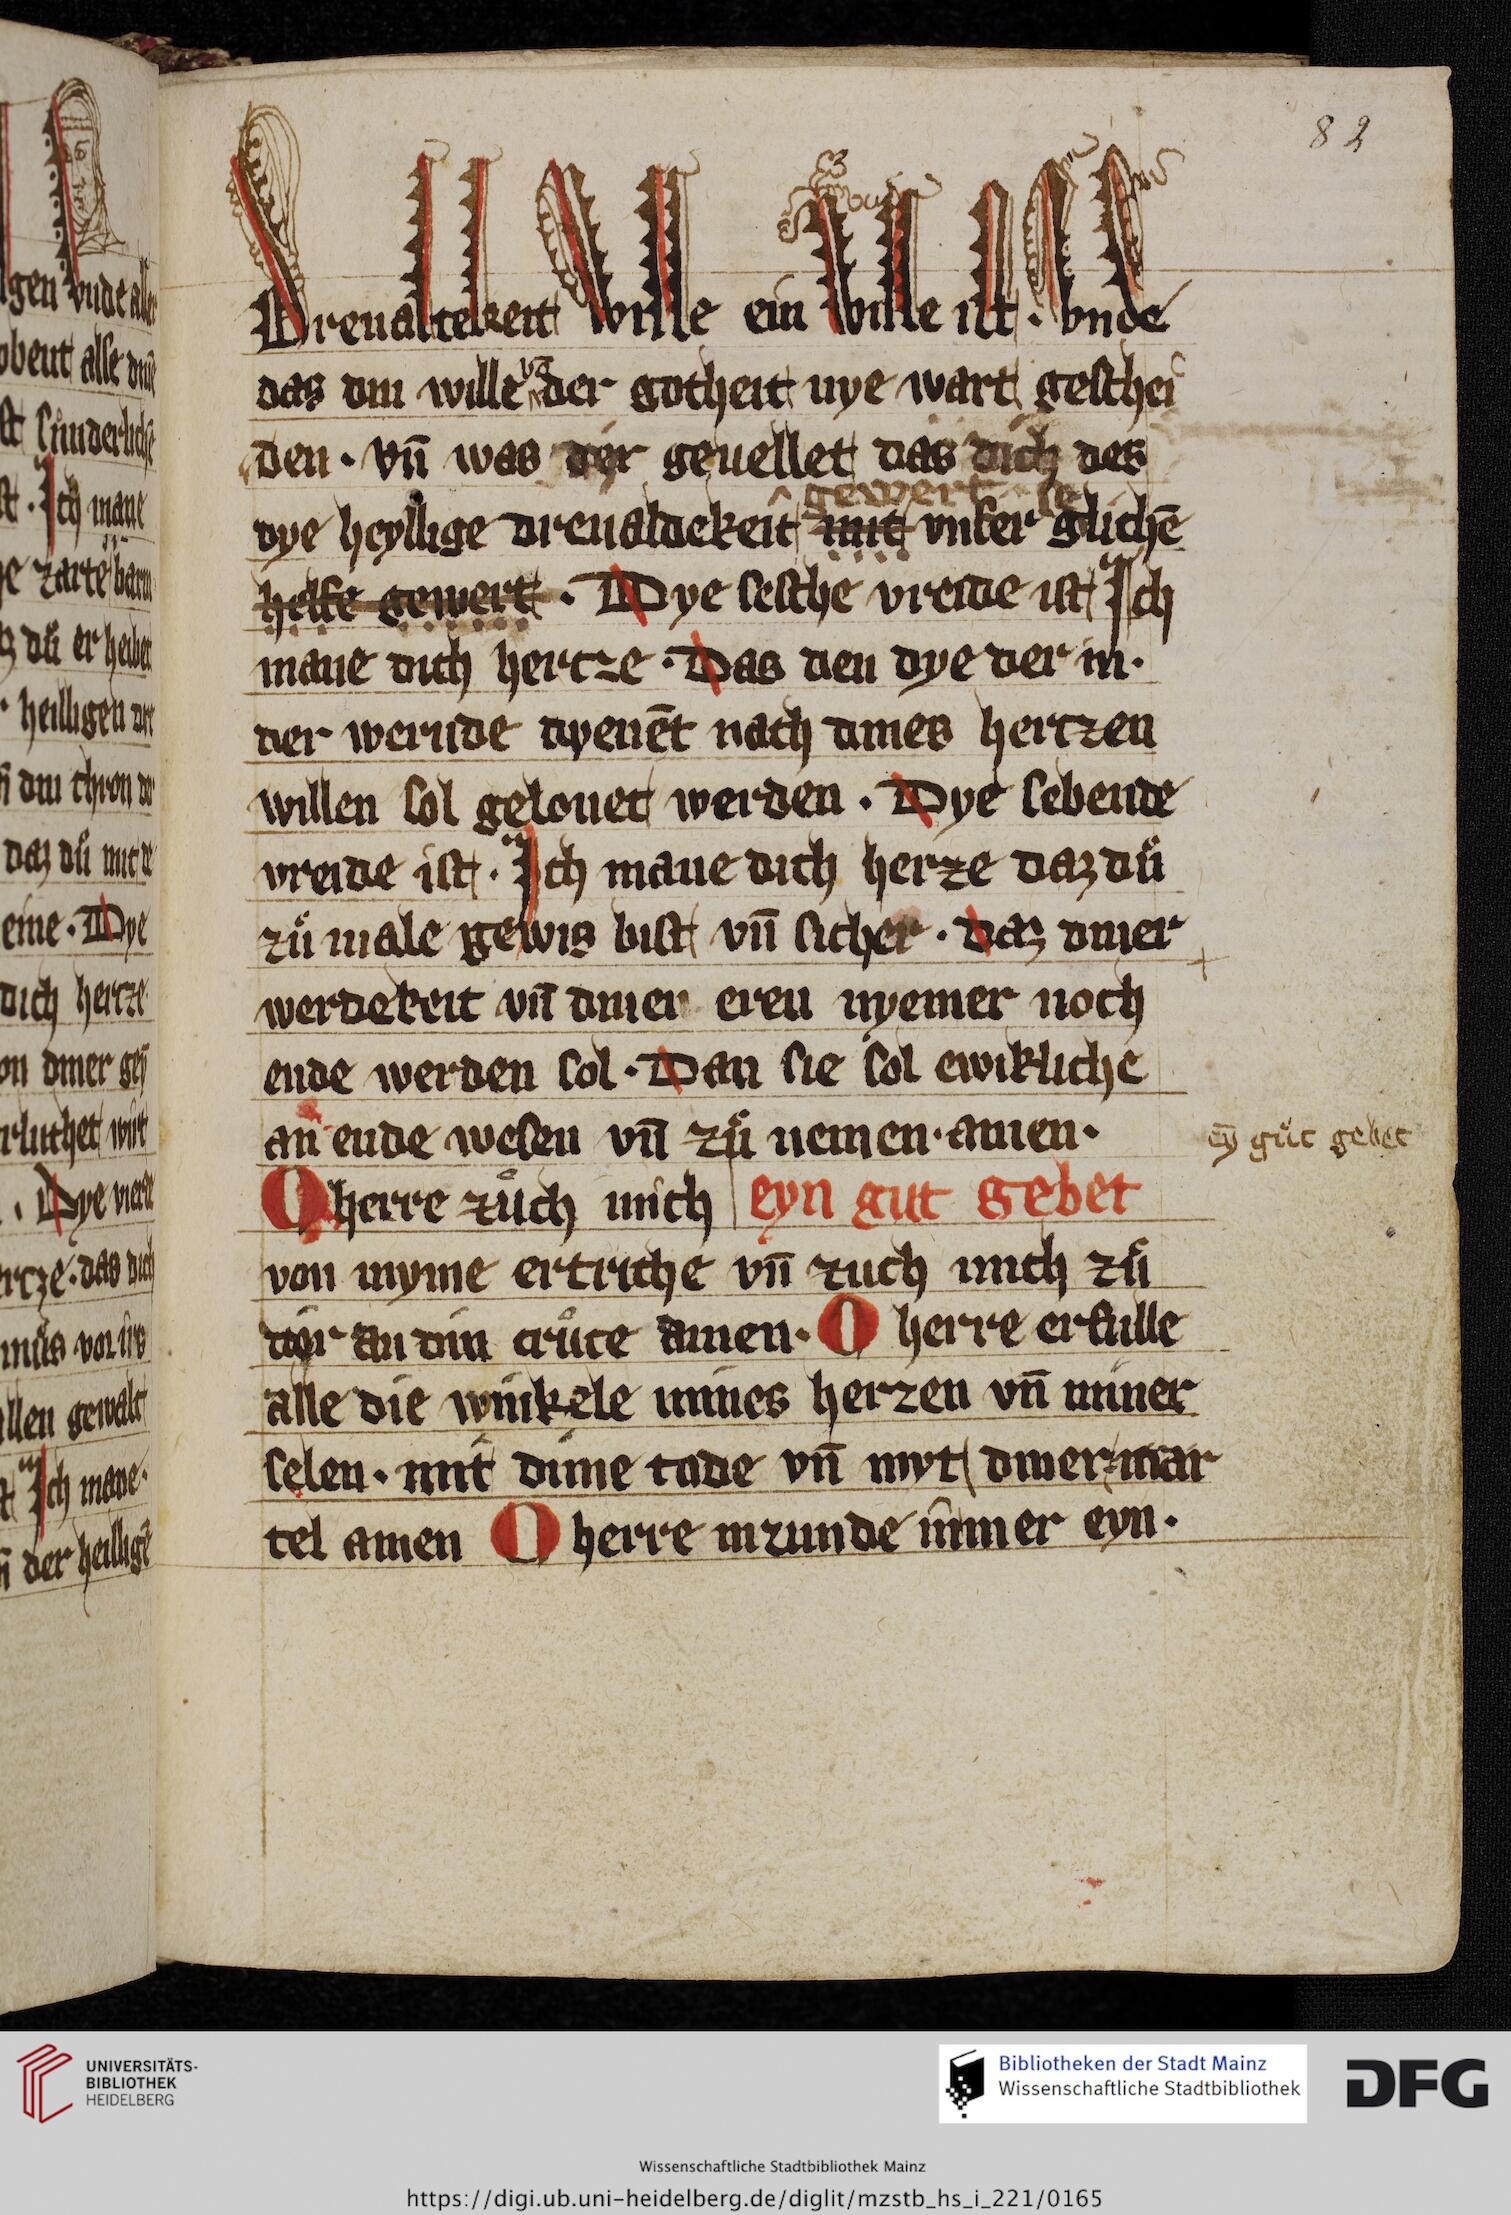 82
Dreualtekeit wille ein wille ist · vnde
das din wille vō der gotheit nye wart geschei
den · vn̄ was der geuellet das dich des
gewert
dye heyllige dreualdekeit mit vnser glichē
helfe gewert · Dye seschte vreide ist Ich
mane dich hertze · Das den dye der in ·
der wernde dyenēt nach dines hertzen
willen sol gelouet werden · Dye sebende
vreide ist · Ich mane dich herze daz dů
zů male gewis bist vn̄ sicher · daz diner
werdekeit vn̄ diner eren nyemer noch
ende werden sol · Dan sie sol ewikliche
an ende wesen vn̄ zů nemen · amen ·
ey̅ gůt gebet
O herre zůch mich eyn gut gebet
von myme ertriche vn̄ zuch mich zů
dir an din crůce amen · O herre erfulle
alle die winkele mines herzen vn̄ miner
selen · mit dime tode vn̄ myt diner mar
tel amen O herre inzunde im̄mer eyn ·
gen vnde alle
obent alle
st sunderliche
st · Ich mane
zarte barm
dů er hebet
heilligen
din thron
daz dů mit
eine · Dye
dich hertze
on diner
Dye vierde
das dich
allen gewalt
Ich mane ·
der heillige
UNIVERSITÄTS-
BIBLIOTHEK
HEIDELBERG
Bibliotheken der Stadt Mainz
Wissenschaftliche Stadtbibliothek
DFG
Wissenschaftliche Stadtbibliothek Mainz
https://digi.ub.uni-heidelberg.de/diglit/mzstb_hs_i_221/0165